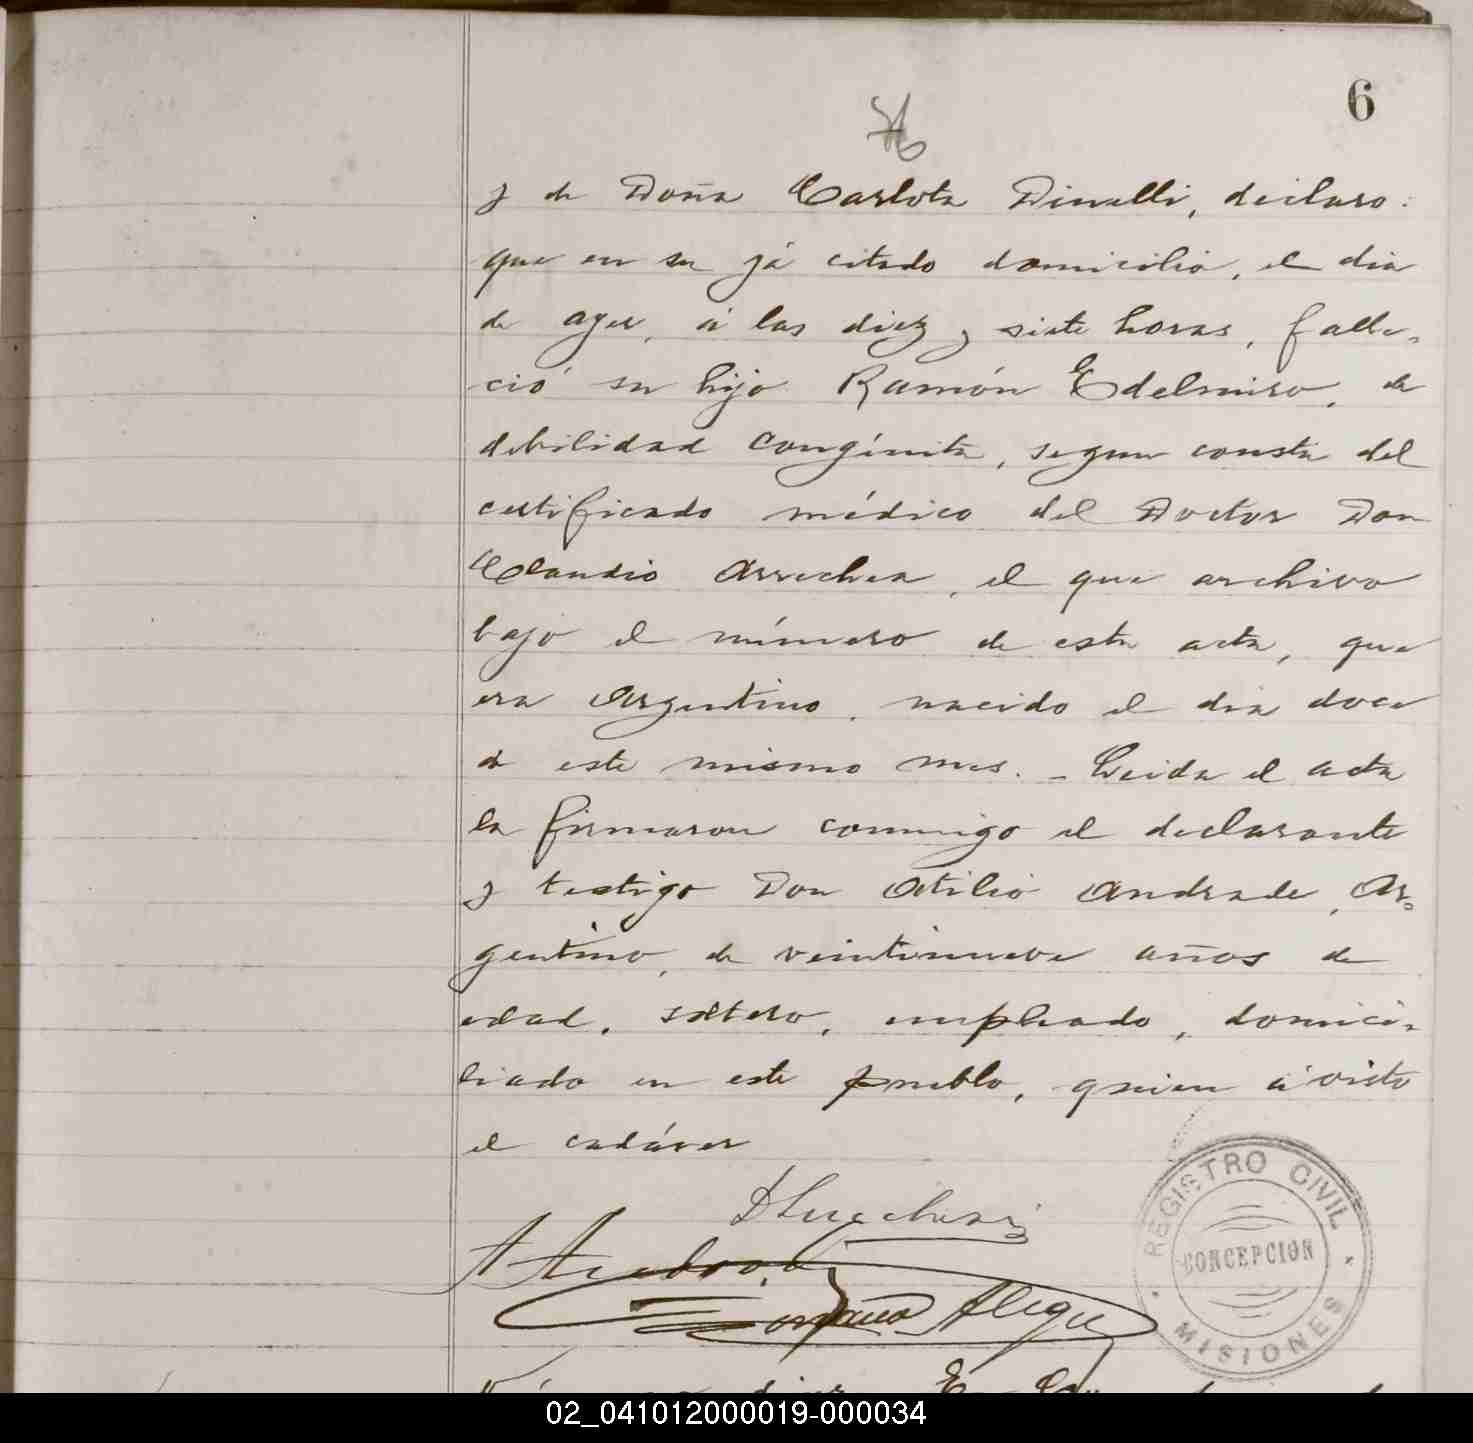 6
y de Doña Carlota Dinelli, declaro:
que en su já citado domicilio, el dia
de ayer, á las diez y siete horas, falle-
ció su hijo Ramón Edelmiro, de
debilidad congénita, segun consta del
certificado médico del Doctor Don
Claudio Arrechea, el que archivo
bajo el número de esta acta, que
era Argentino, nacido el dia doce
de este mismo mes. - Leida el acta
la firmaron conmigo el declarante
y testigo Don Atilio Andrade, Ar-
gentino, de veintinueve años de
edad, soltero, empleado, domici-
liado en este pueblo, quien á visto
el cadáver
A Andrade
REGISTRO CIVIL
CONCEPCION
MISIONES
02_041012000019-000034